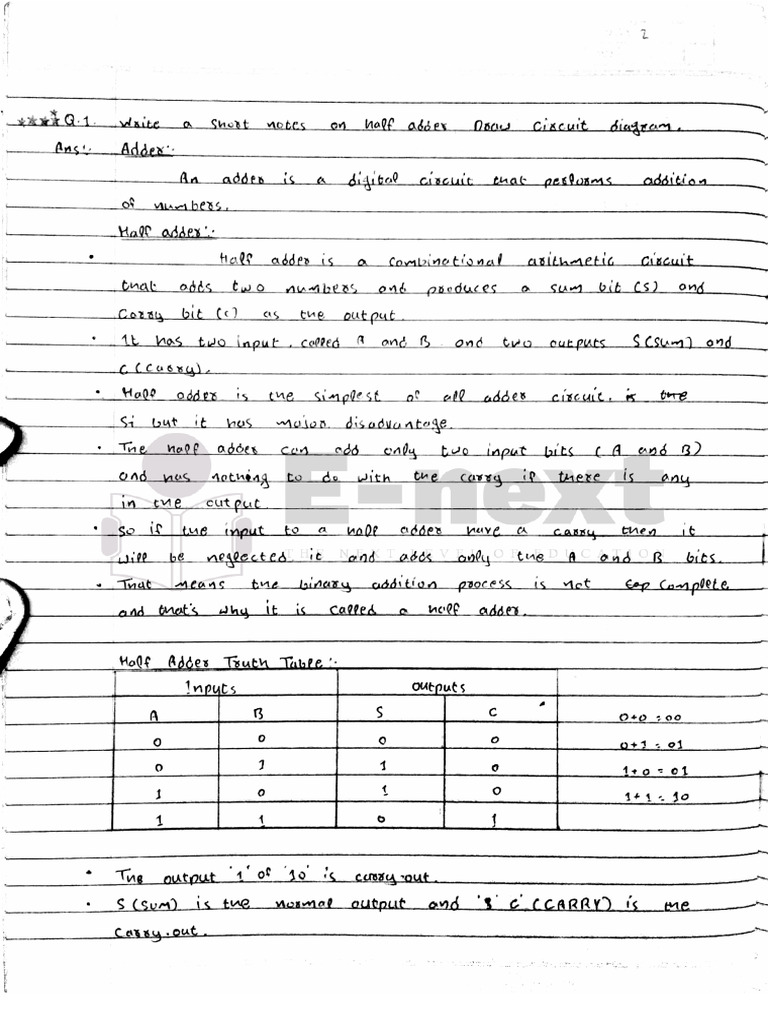 2
****Q.1. Write a short notes on half adder Draw circuit diagram.
Ans:- Adder:-
An adder is a digital circuit that performs addition
of numbers.
Half adder:-
• Half adder is a combinational arithmetic circuit
that adds two numbers and produces a sum bit (S) and
Carry bit (C) as the output.
• It has two input, called A and B and two outputs S(Sum) and
C(Carry).
• Half adder is the simplest of all adder circuit, is the
Si but it has major disadvantage.
• The half adder can add only two input bits (A and B)
and has nothing to do with the carry if there is any
in the output.
• So if the input to a half adder have a carry then it
will be neglected it and adds only the A and B bits.
• That means the binary addition process is not complete
and that's why it is called a half adder.
E-next
THE NEXT LEVEL OF EDUCATION
Half Adder Truth Table:-
Inputs outputs
A B S C 0+0=00
0 0 0 0 0+1=01
0 1 1 0 1+0=01
1 0 1 0 1+1=10
1 1 0 1
• The output '1' of '10' is carry-out.
• S(Sum) is the normal output and 'C' (CARRY) is the
Carry-out.